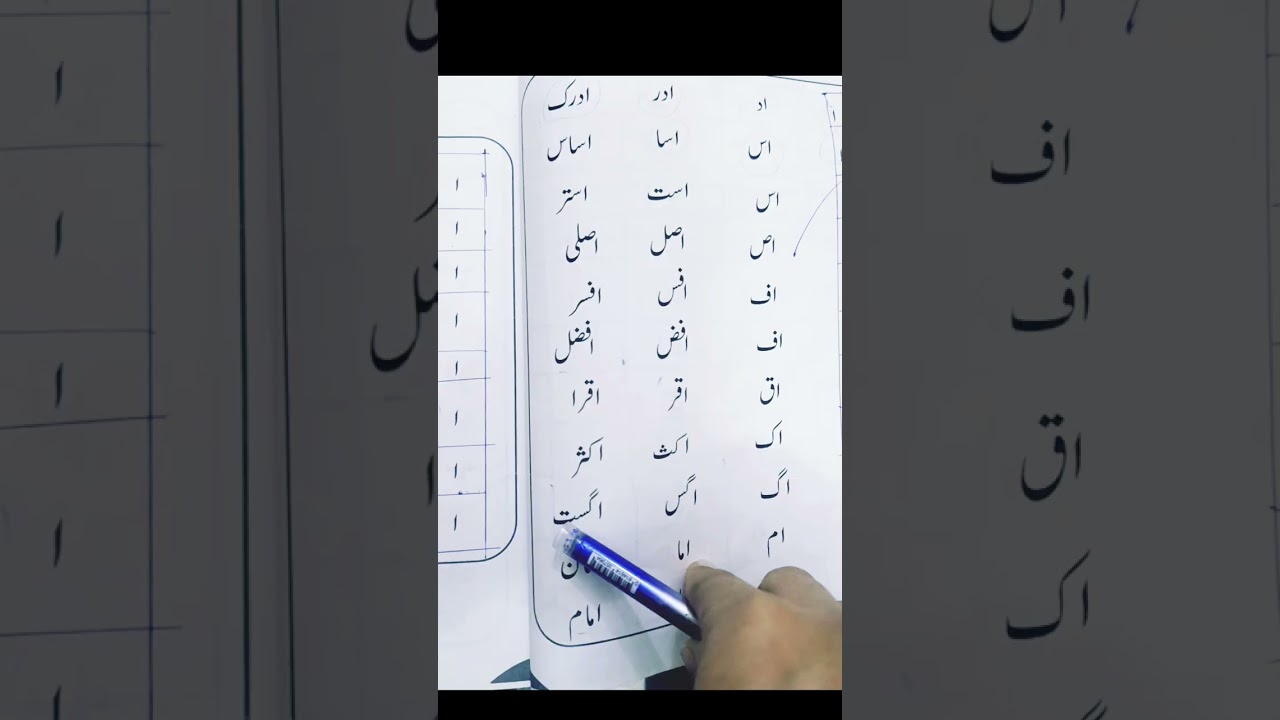 اد ادر ادرک
اس اسا اساس
اس است استر
اص اصل اصلی
اف افس افسر
اف افض افضل
اق اقر اقرا
اک اکث اکثر
اگ اگس اگست
ام اما
امام
ا
ا
ا
ا
ا
ا
ا
ا